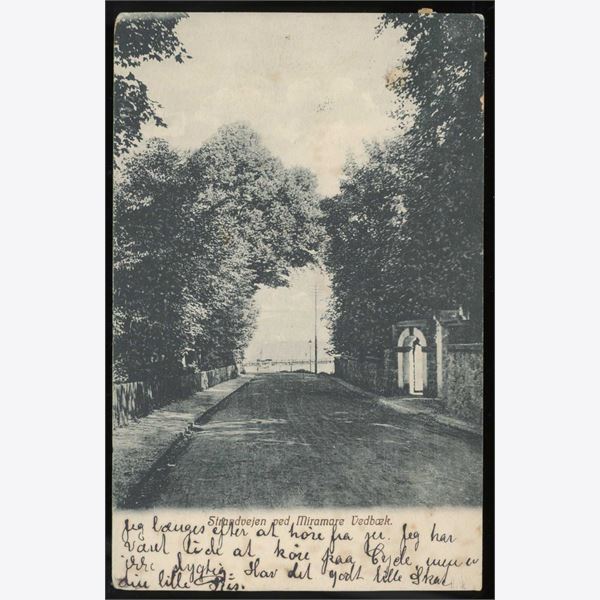 Strandvejen ved Miramare Vedbæk.
Jeg længes efter at höre fra jer. Jeg har
været ude at köre paa Cycle, men er
ikke dygtig. Hav det godt lille Skat
din lille Sis.